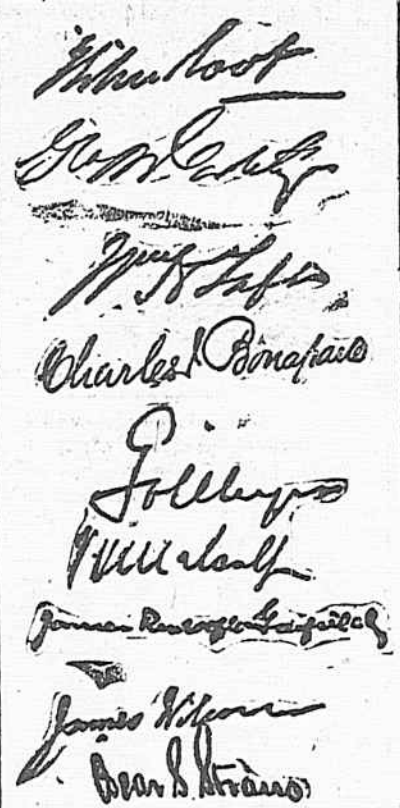 Elihu Root
Wm H Taft
Charles J Bonaparte
GvLMeyer
VH Metcalf
James Rudolph Garfield
James Wilson
Oscar S. Straus